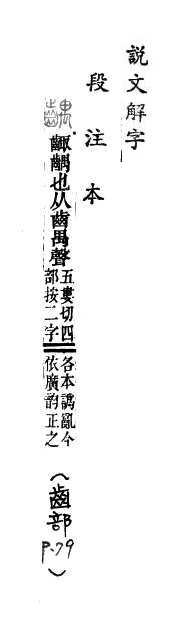 說文解字
段注本
齵
齱齵也从齒禺聲
五婁切四
部按二字
各本譌亂今
依廣韵正之
（齒部P.79）